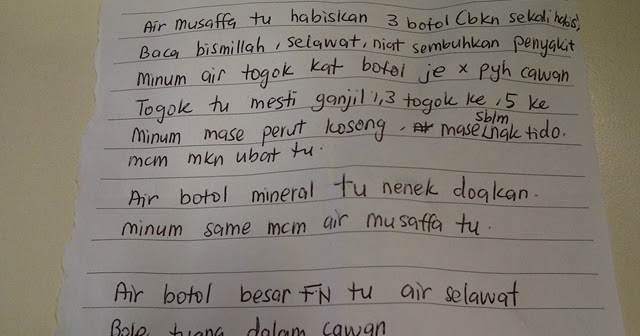 Air musaffa tu habiskan 3 botol (bkn sekali habis),
Baca bismillah, selawat, niat sembuhkan penyakit
Minum air togok kat botol je x pyh cawan
Togok tu mesti ganjil 1,3 togok ke, 5 ke
sblm
Minum mase perut kosong, mase nak tido.
mcm mkn ubat tu.
Air botol mineral tu nenek doakan.
minum same mcm air musaffa tu.
Air botol besar FN tu air selawat
Bole tuang dalam cawan